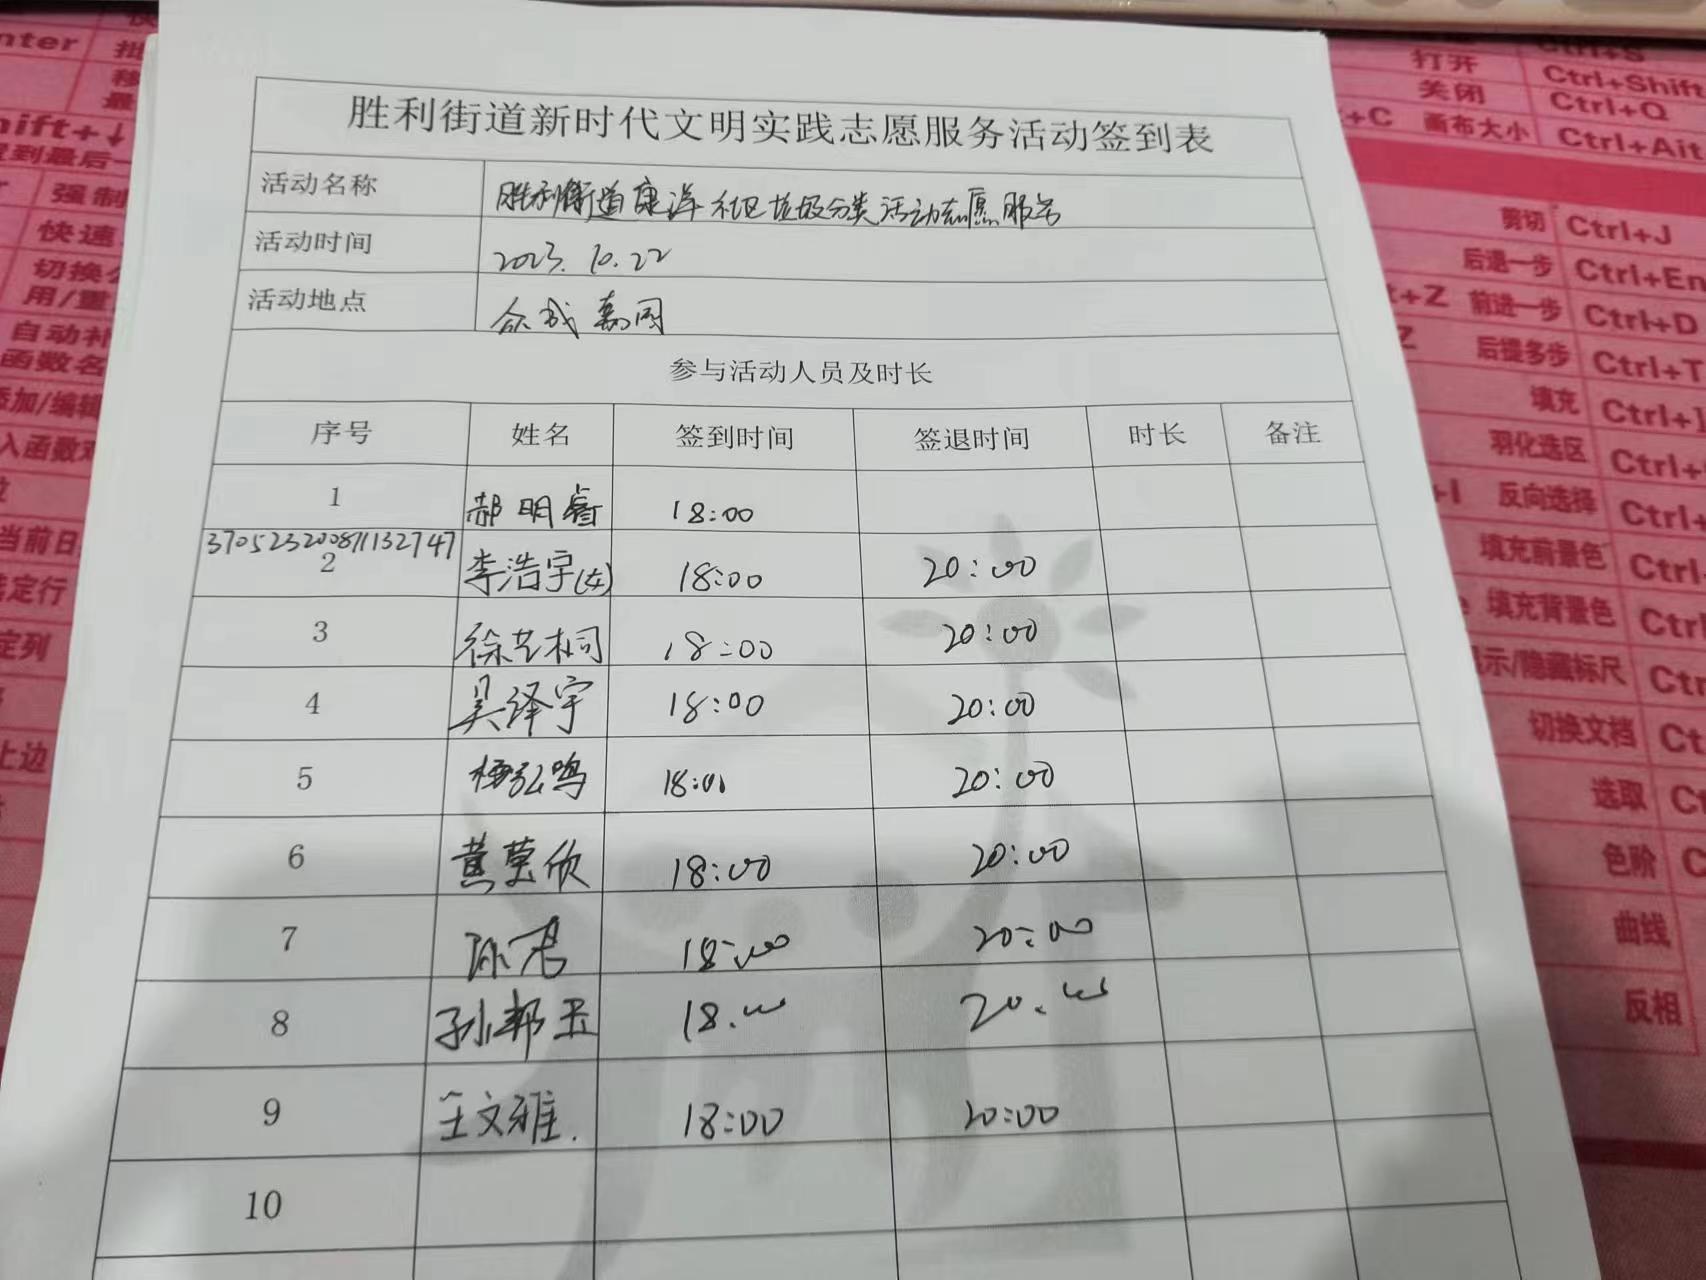 胜利街道新时代文明实践志愿服务活动签到表
活动名称 胜利街道康洋社区垃圾分类活动志愿服务
活动时间 2023.10.22
活动地点 众成嘉园
参与活动人员及时长
序号 姓名 签到时间 签退时间 时长 备注
1 郝明睿 18:00
370523200811132747
2 李浩宇(女) 18:00 20:00
3 徐艺桐 18:00 20:00
4 吴泽宇 18:00 20:00
5 杨弘鸣 18:00 20:00
6 黄莹欣 18:00 20:00
7 孙君 18:00 20:00
8 孙邦玉 18:00 20:00
9 王文雅. 18:00 20:00
10
打开 Ctrl+Shift
关闭 Ctrl+Q
画布大小 Ctrl+Alt
剪切 Ctrl+J
后退一步
前进一步 Ctrl+D
后提多步 Ctrl+T
填充
羽化选区
反向选择
填充前景色
填充背景色
显示/隐藏标尺
切换文档
选取
色阶
曲线
反相
强制
快速